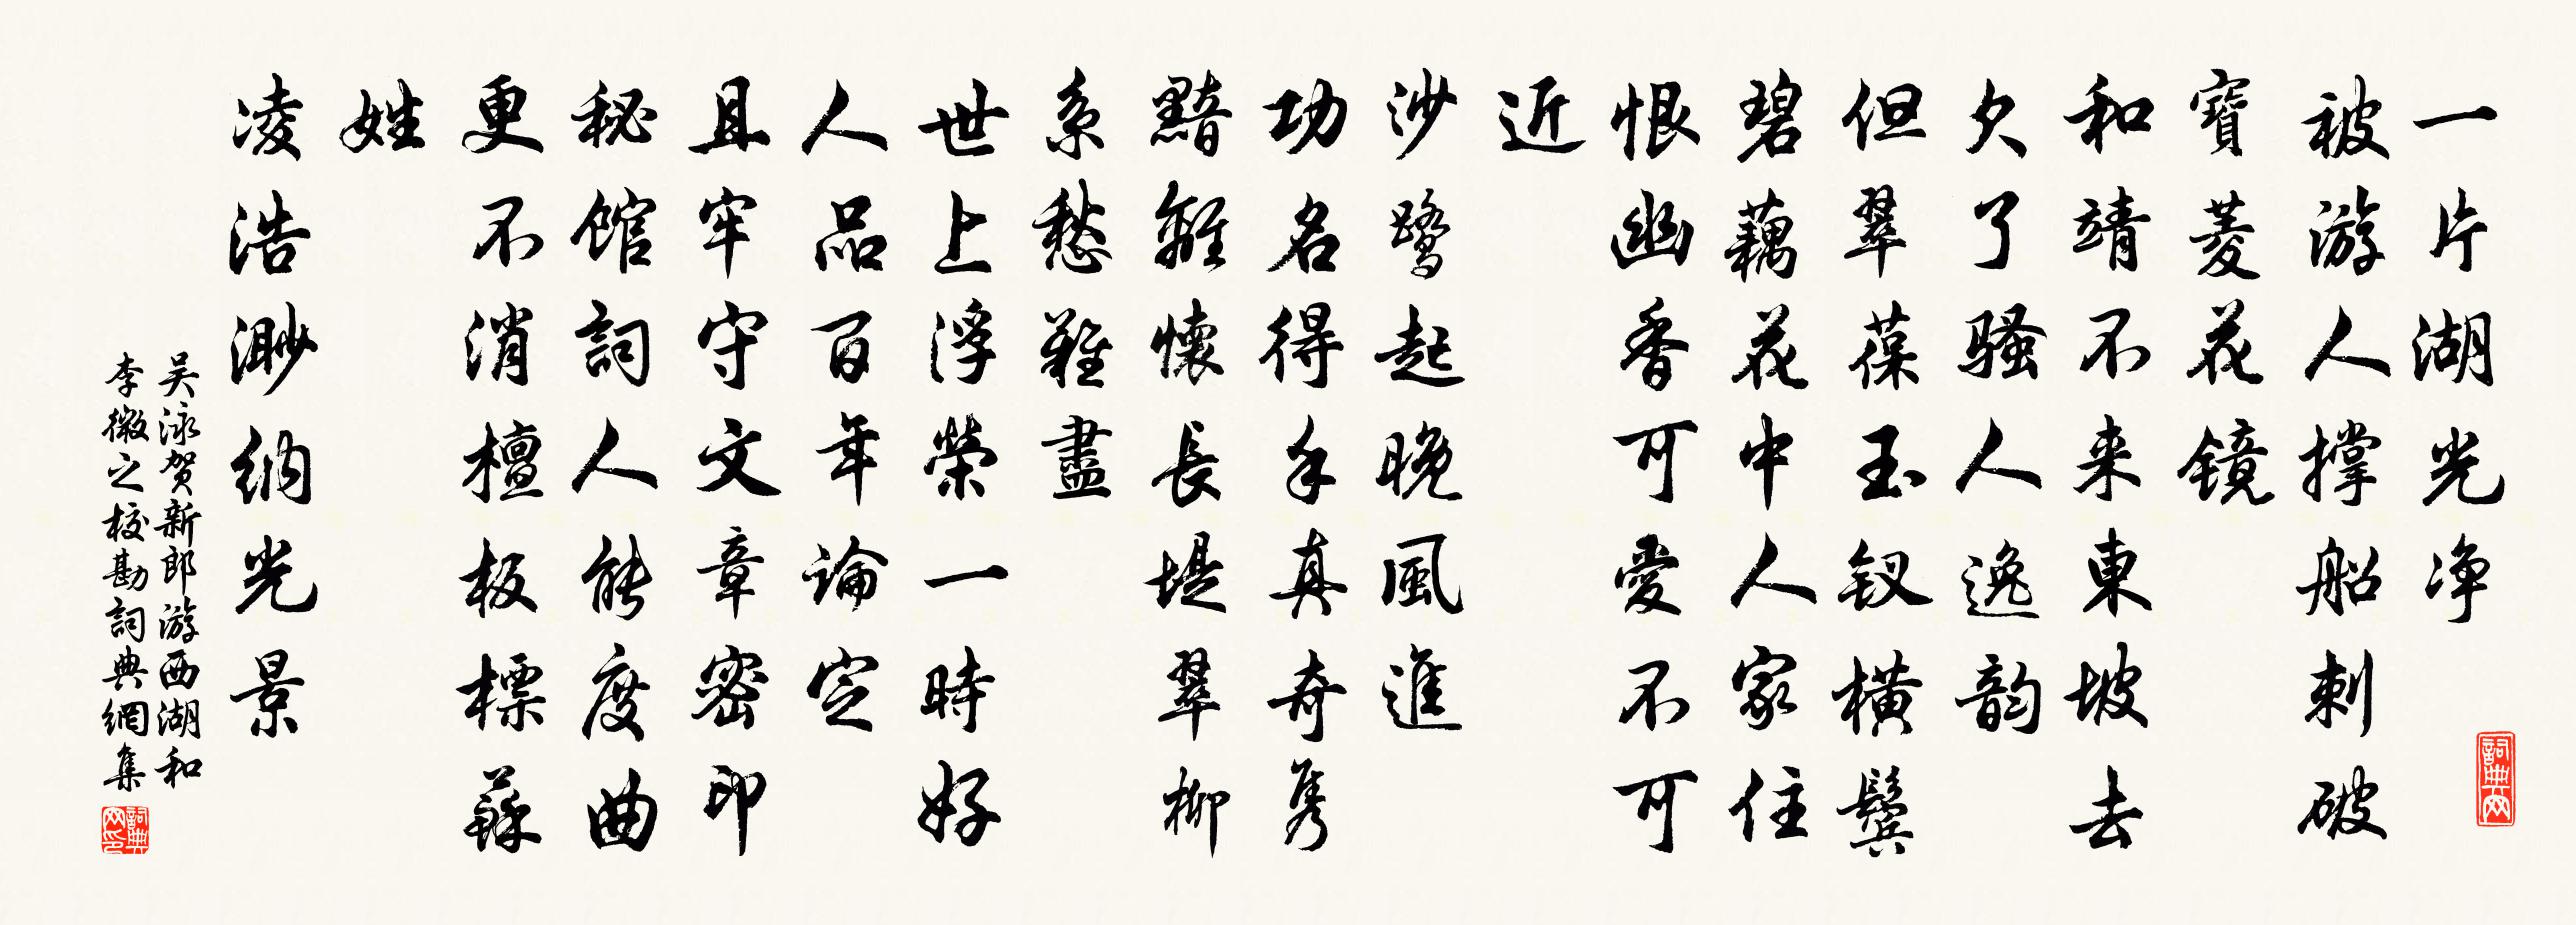 一片湖光净
被游人撑船刺破
寶菱花镜
和靖不来東坡去
欠了骚人逸韵
但翠葆玉钗横鬓
碧藕花中人家住
恨幽香可愛不可
近
沙鹭起晚風進
功名得手真奇隽
黯離懷長堤翠柳
系愁難盡
世上浮榮一時好
人品百年論定
且牢守文章密印
秘馆詞人能度曲
更不消檀板標蘇
姓
凌浩渺纳光景
吴泳贺新郎游西湖和
李微之校勘詞典網集
詞典网
詞典网印